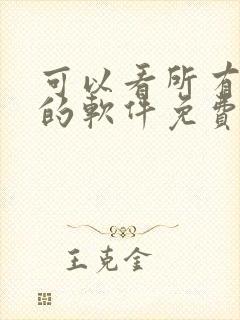 可以看所有
的軟件免費
王克金